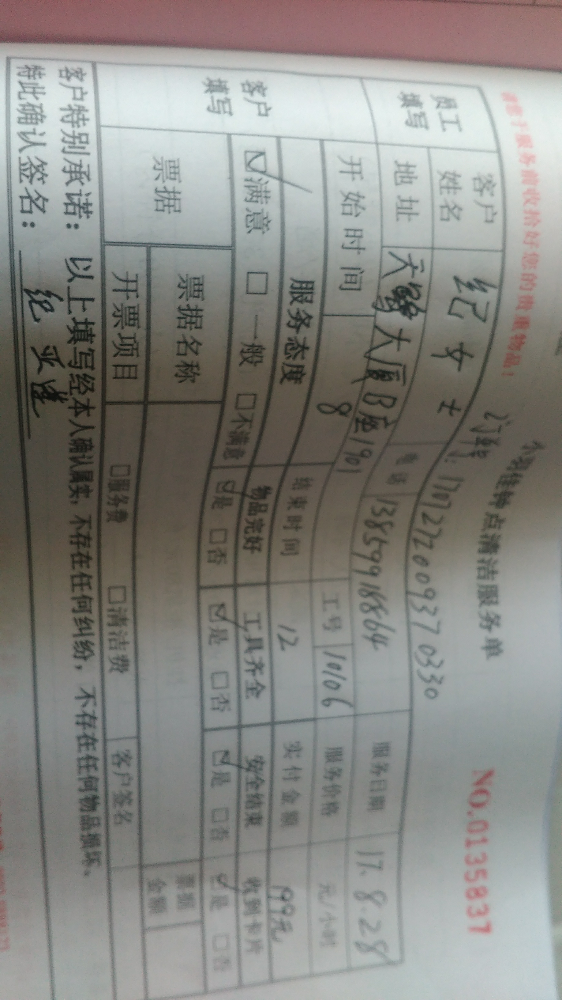 请您于服务前收拾好您的贵重物品!
钟点清洁服务单
NO.0135837
订单号: 170727200937 0330
员工填写
客户姓名 纪女士 电话 13859918864 服务日期 17.8.28
地址 天骜大厦B座1901 工号 10106 服务价格 元/小时
开始时间 8 结束时间 12 实付金额 199元
客户填写
服务态度 物品完好 工具齐全 安全结束 收到卡片
☑满意 □一般 □不满意 ☑是 □否 ☑是 □否 ☑是 □否 ☑是 □否
票据 票据名称 票据金额
开票项目 □服务费 □清洁费 客户签名
客户特别承诺: 以上填写经本人确认属实, 不存在任何纠纷, 不存在任何物品损坏、
特此确认签名: 纪亚莲